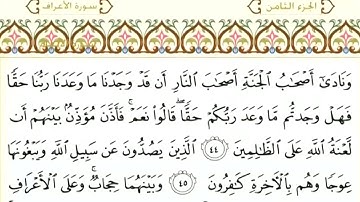 الجزء الثامن
سورة الأعراف
وَنَادَىٰٓ أَصْحَٰبُ الْجَنَّةِ أَصْحَٰبَ النَّارِ أَن قَدْ وَجَدْنَا مَا وَعَدَنَا رَبُّنَا حَقًّا
فَهَلْ وَجَدتُّم مَّا وَعَدَ رَبُّكُمْ حَقًّا ۖ قَالُوا۟ نَعَمْ ۚ فَأَذَّنَ مُؤَذِّنٌۢ بَيْنَهُمْ أَن
لَّعْنَةُ اللَّهِ عَلَى الظَّٰلِمِينَ ٤٤ الَّذِينَ يَصُدُّونَ عَن سَبِيلِ اللَّهِ وَيَبْغُونَهَا
عِوَجًا وَهُم بِالْءَاخِرَةِ كَٰفِرُونَ ٤٥ وَبَيْنَهُمَا حِجَابٌ ۚ وَعَلَى الْأَعْرَافِ